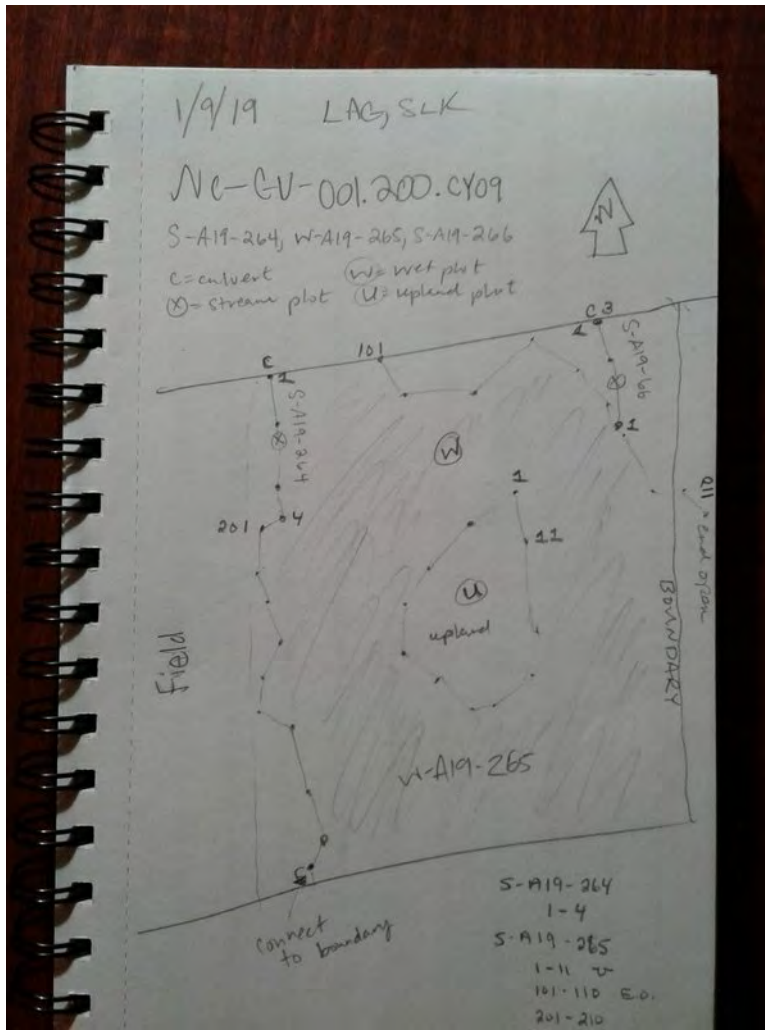 1/9/19 LAG, SLK
NC-CU-001.200.CY09
S-A19-264, W-A19-265, S-A19-266
C=culvert (W)=wet plot
⊗=stream plot (U)=upland plot
N
C 3
101
C
1
S-A19-66
S-A19-264
1
W
1
201
4
11
211
end open
U
upland
BOUNDARY
Field
W-A19-265
connect
to boundary
S-A19-264
1-4
S-A19-265
1-11
101-110 E.O.
201-210